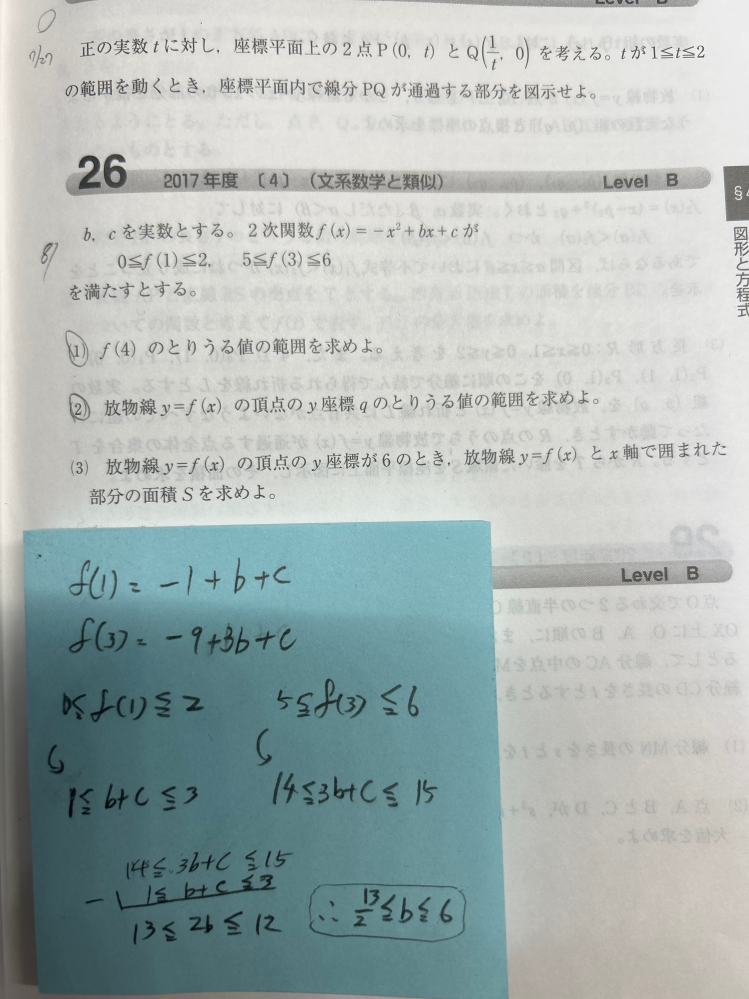 Level B
7/27
正の実数 t に対し，座標平面上の2点 P(0, t) と Q(1/t, 0) を考える。t が 1≦t≦2
の範囲を動くとき，座標平面内で線分PQが通過する部分を図示せよ。
26 2017年度 〔4〕（文系数学と類似） Level B
§4
図形と方程式
8/
b, c を実数とする。2次関数 f(x)=−x²+bx+c が
0≦f(1)≦2, 5≦f(3)≦6
を満たすとする。
(1) f(4) のとりうる値の範囲を求めよ。
(2) 放物線 y=f(x) の頂点の y 座標 q のとりうる値の範囲を求めよ。
(3) 放物線 y=f(x) の頂点の y 座標が6のとき，放物線 y=f(x) と x 軸で囲まれた
部分の面積 S を求めよ。
Level B
f(1) = −1+b+c
f(3) = −9+3b+c
0≦f(1)≦2 5≦f(3)≦6
1≦b+c≦3 14≦3b+c≦15
14≦3b+c≦15
− 1≦b+c≦3
13≦2b≦12 ∴ 13/2≦b≦6